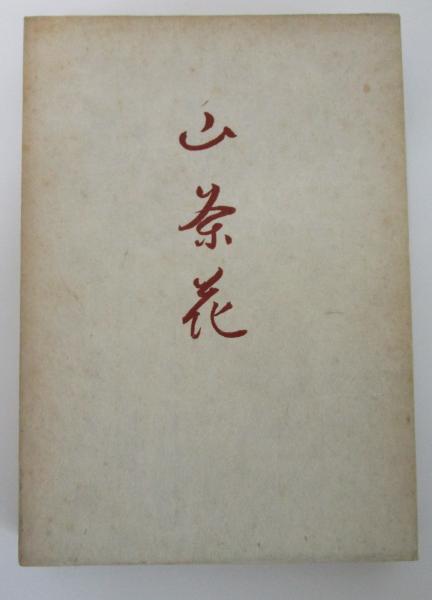 山茶花